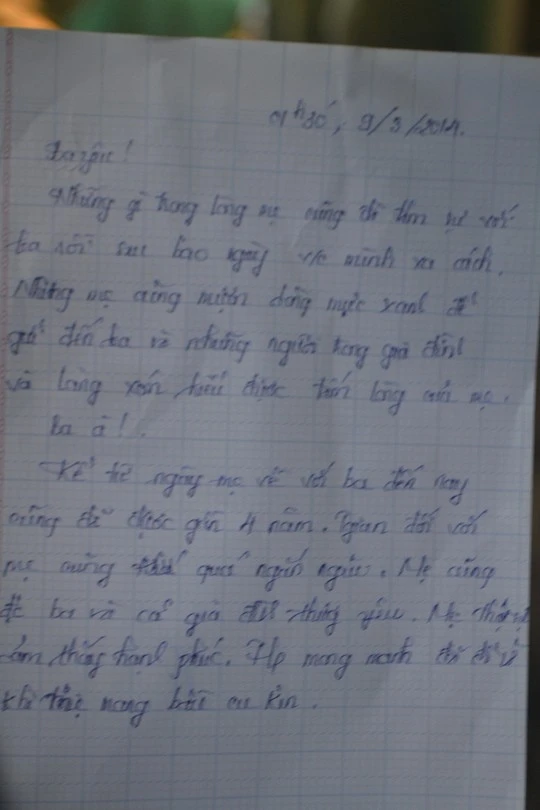 01h30', 9/3/2014.
Ba yêu!
Những gì trong lòng mẹ cũng đã tâm sự với
ba rồi sau bao ngày vc mình xa cách.
Nhưng mẹ cũng mượn dòng mực xanh để
gửi đến ba và những người trong gia đình
và làng xóm hiểu được tấm lòng của mẹ.
Ba à!.
Kể từ ngày mẹ về với ba đến nay
cũng đã được gần 4 năm. Tgian đối với
mẹ cũng quá ngắn ngủi. Mẹ cũng
đc ba và cả gia đình thương yêu. Mẹ thấy
ấm thắng hạnh phúc. Hp mong manh đã đi về
khi mang bầu cu Kin.